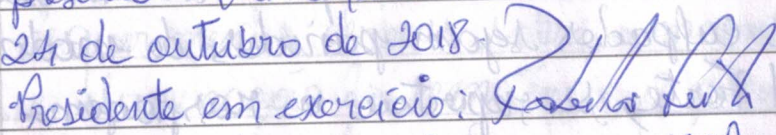 24 de outubro de 2018.
Presidente em exercício: